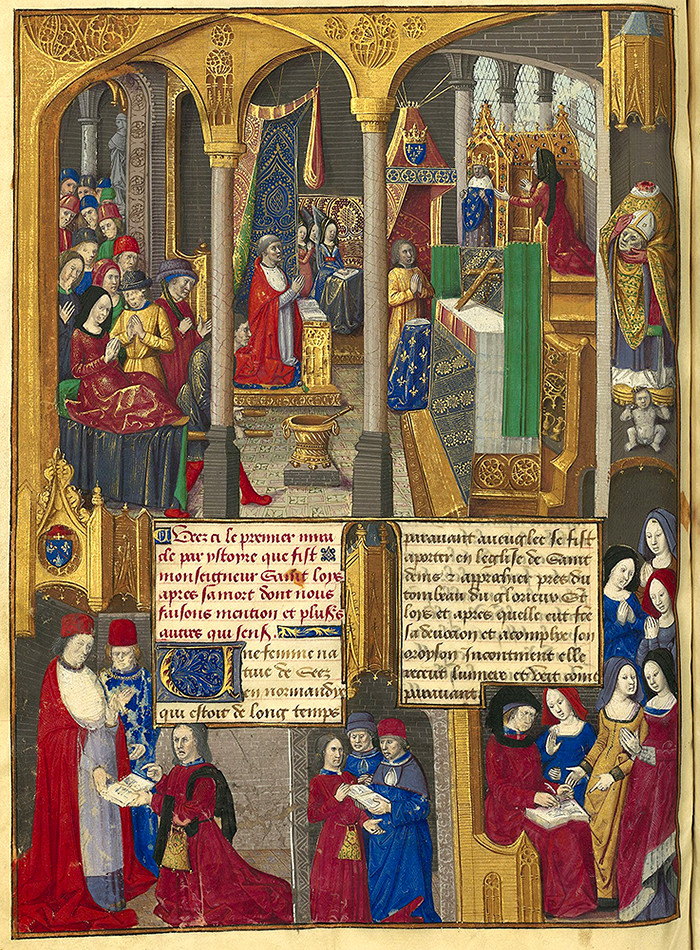 Veez ci le premier mira
cle par ystoyre que fist
monseigneur Saint loys
apres sa mort dont nous
faisons mention et plus's
autres qui sens.
Une femme na
tiue de Seez
en normandie
qui estoit de long temps
parauant aueuglee se fist
aporter en leglise de Saint
denis & aprochier pres du
tombeau du glorieux St
loys et apres quelle eut fct
sa deuocion et acomplye son
oroyson Incontinent elle
receut lumiere et veit come
parauant.